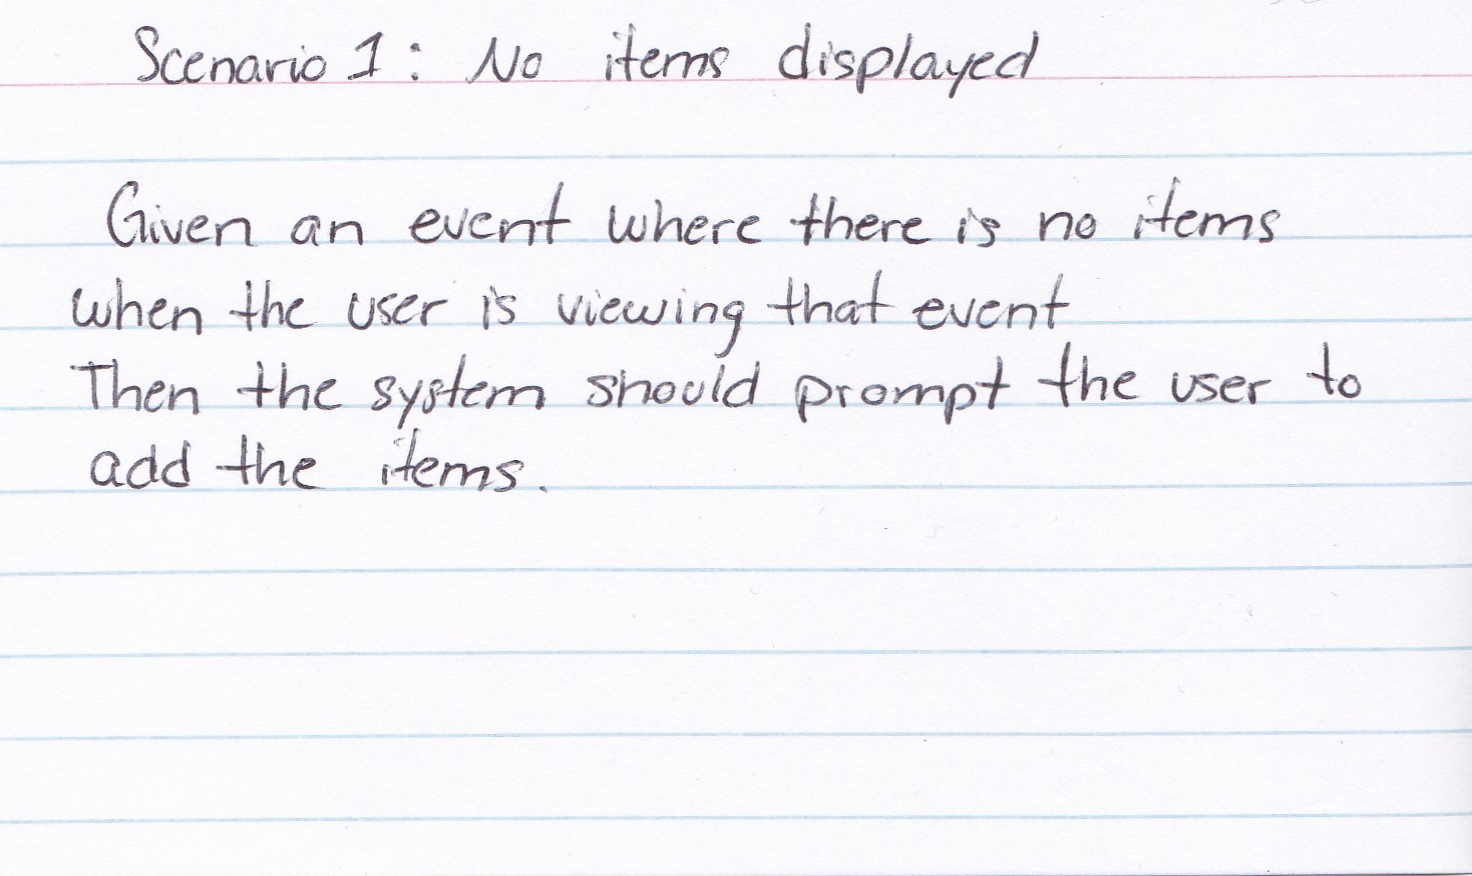 Scenario 1: No items displayed
Given an event where there is no items
when the user is viewing that event
Then the system should prompt the user to
add the items.